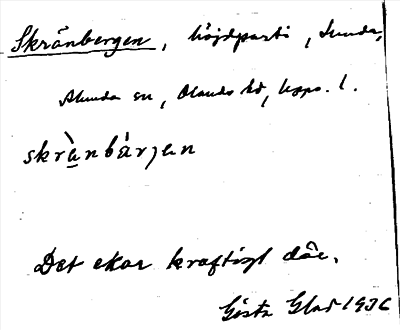 Skränbergen, höjdparti, Sunda,
Alunda sn, Olands hd, Upps. l.
skrànbárjan
Det ekar kraftigt där.
Gösta Glad 1936